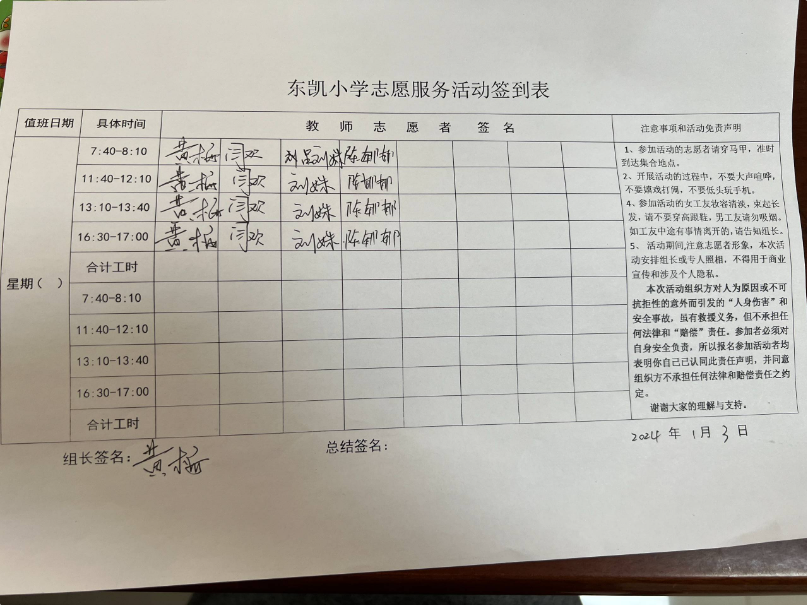 东凯小学志愿服务活动签到表
值班日期 具体时间 教师志愿者签名 注意事项和活动免责声明
7:40-8:10 黄梅 闫欢 刘姝 陈郁郁
11:40-12:10 黄梅 闫欢 刘姝 陈郁郁
13:10-13:40 黄梅 闫欢 刘姝 陈郁郁
16:30-17:00 黄梅 闫欢 刘姝 陈郁郁
星期( )
合计工时
7:40-8:10
11:40-12:10
13:10-13:40
16:30-17:00
合计工时
1、参加活动的志愿者请穿马甲，准时
到达集合地点。
2、开展活动的过程中，不要大声喧哗，
不要嬉戏打闹，不要低头玩手机。
4、参加活动的女工友妆容清淡，束起长
发，请不要穿高跟鞋，男工友请勿吸烟。
如工友中途有事情离开的，请告知组长。
5、活动期间，注意志愿者形象，本次活
动安排组长或专人照相，不得用于商业
宣传和涉及个人隐私。
本次活动组织方对人为原因或不可
抗拒性的意外而引发的“人身伤害”和
安全事故，虽有救援义务，但不承担任
何法律和“赔偿”责任。参加者必须对
自身安全负责，所以报名参加活动者均
表明你自己已认同此责任声明，并同意
组织方不承担任何法律和赔偿责任之约
定。
谢谢大家的理解与支持。
组长签名：黄梅 总结签名： 2024 年 1 月 3 日